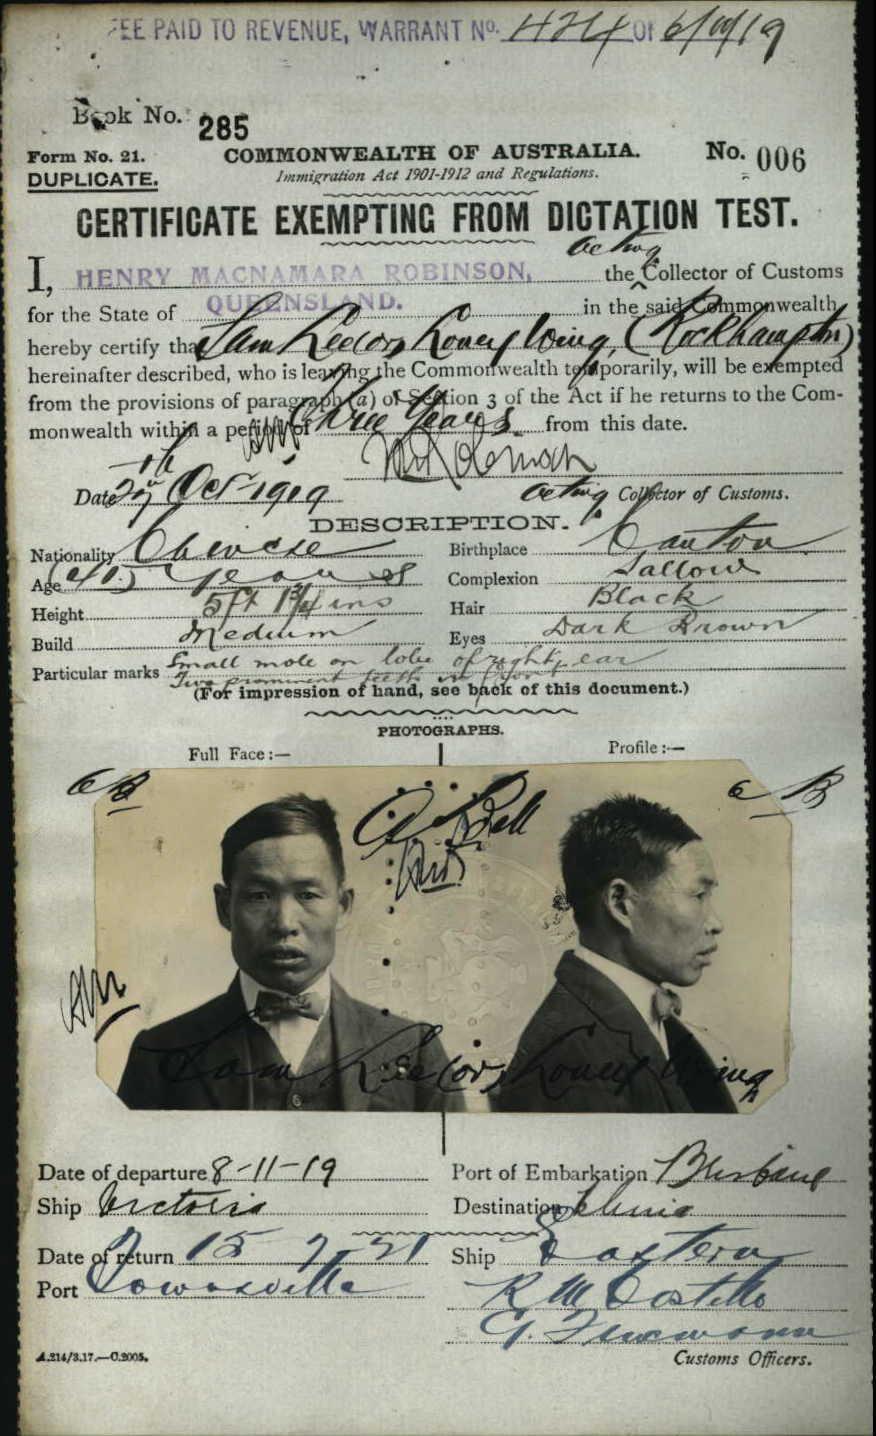 FEE PAID TO REVENUE, WARRANT No. 424 OF 6/10/19
Book No. 285
Form No. 21. COMMONWEALTH OF AUSTRALIA. No. 006
DUPLICATE. Immigration Act 1901-1912 and Regulations.
CERTIFICATE EXEMPTING FROM DICTATION TEST.
acting
I, HENRY MACNAMARA ROBINSON, the Collector of Customs
for the State of QUEENSLAND. in the said Commonwealth
hereby certify that Sam Lee (or) Wing, (Rockhampton)
hereinafter described, who is leaving the Commonwealth temporarily, will be exempted
from the provisions of paragraph (a) of Section 3 of the Act if he returns to the Com-
monwealth within a period of Three Years from this date.
Date Oct 1919 acting Collector of Customs.
DESCRIPTION.
Nationality Chinese Birthplace Canton
Age years Complexion Sallow
Height 5ft 1¾ ins Hair Black
Build Medium Eyes Dark Brown
Particular marks Small mole on lobe of right ear
Two prominent teeth in
(For impression of hand, see back of this document.)
PHOTOGRAPHS.
Full Face:— Profile:—
Bell
Sam Lee (or) Wing
Date of departure 8-11-19 Port of Embarkation Brisbane
Ship Victoria Destination China
Date of return 15 7 21 Ship Eastern
Port Townsville R M Costello
Customs Officers.
A.214/3.17.—C.2005.